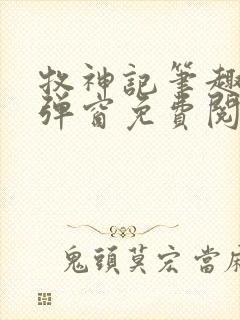 牧神記筆趣
彈窗免費閱
鬼頭莫宏當麻